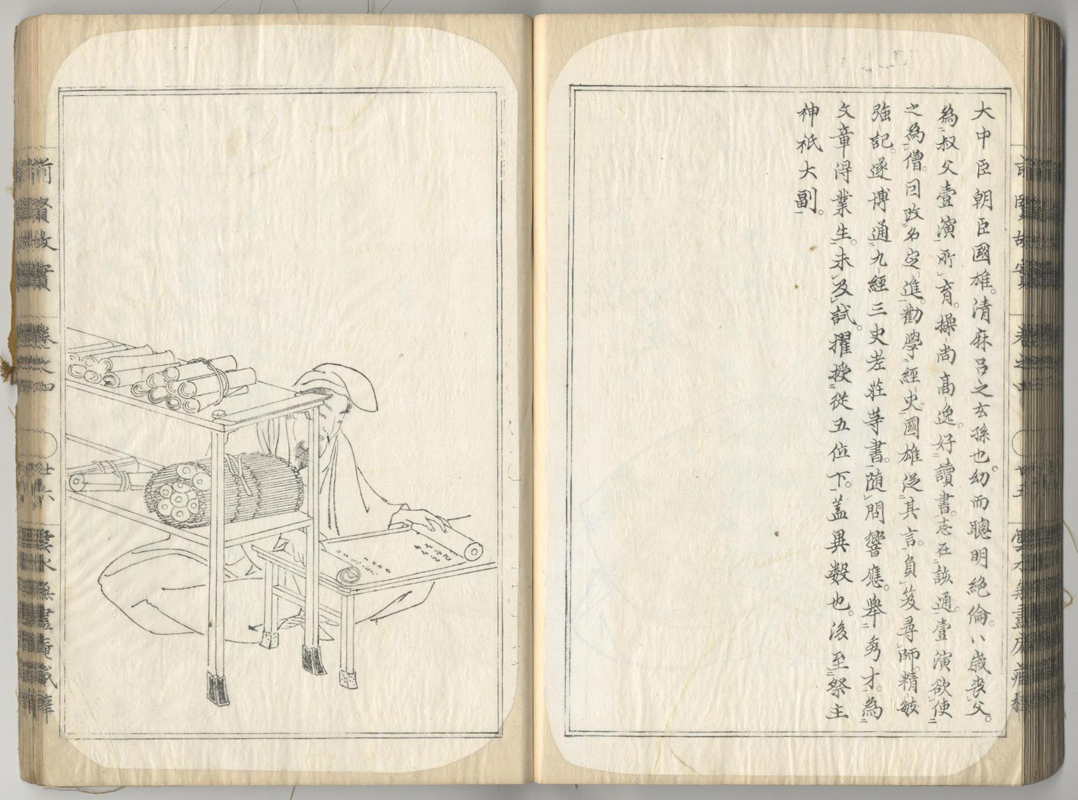 大中臣朝臣國雄。清麻呂之玄孫也。幼而聰明絶倫。八歳喪父。
為叔父壹演所育。操尚高逸。好讀書。志在該通。壹演欲使
之為僧。因改名定進。勸學經史。國雄從其言。負笈尋師。精敏
強記。遂博通九經三史老莊等書。随問響應。擧秀才。為
文章得業生。未及試。擢授從五位下。蓋異数也。後至祭主
神祇大副。
前賢故實 卷之四
前賢故實 卷之四 廿六